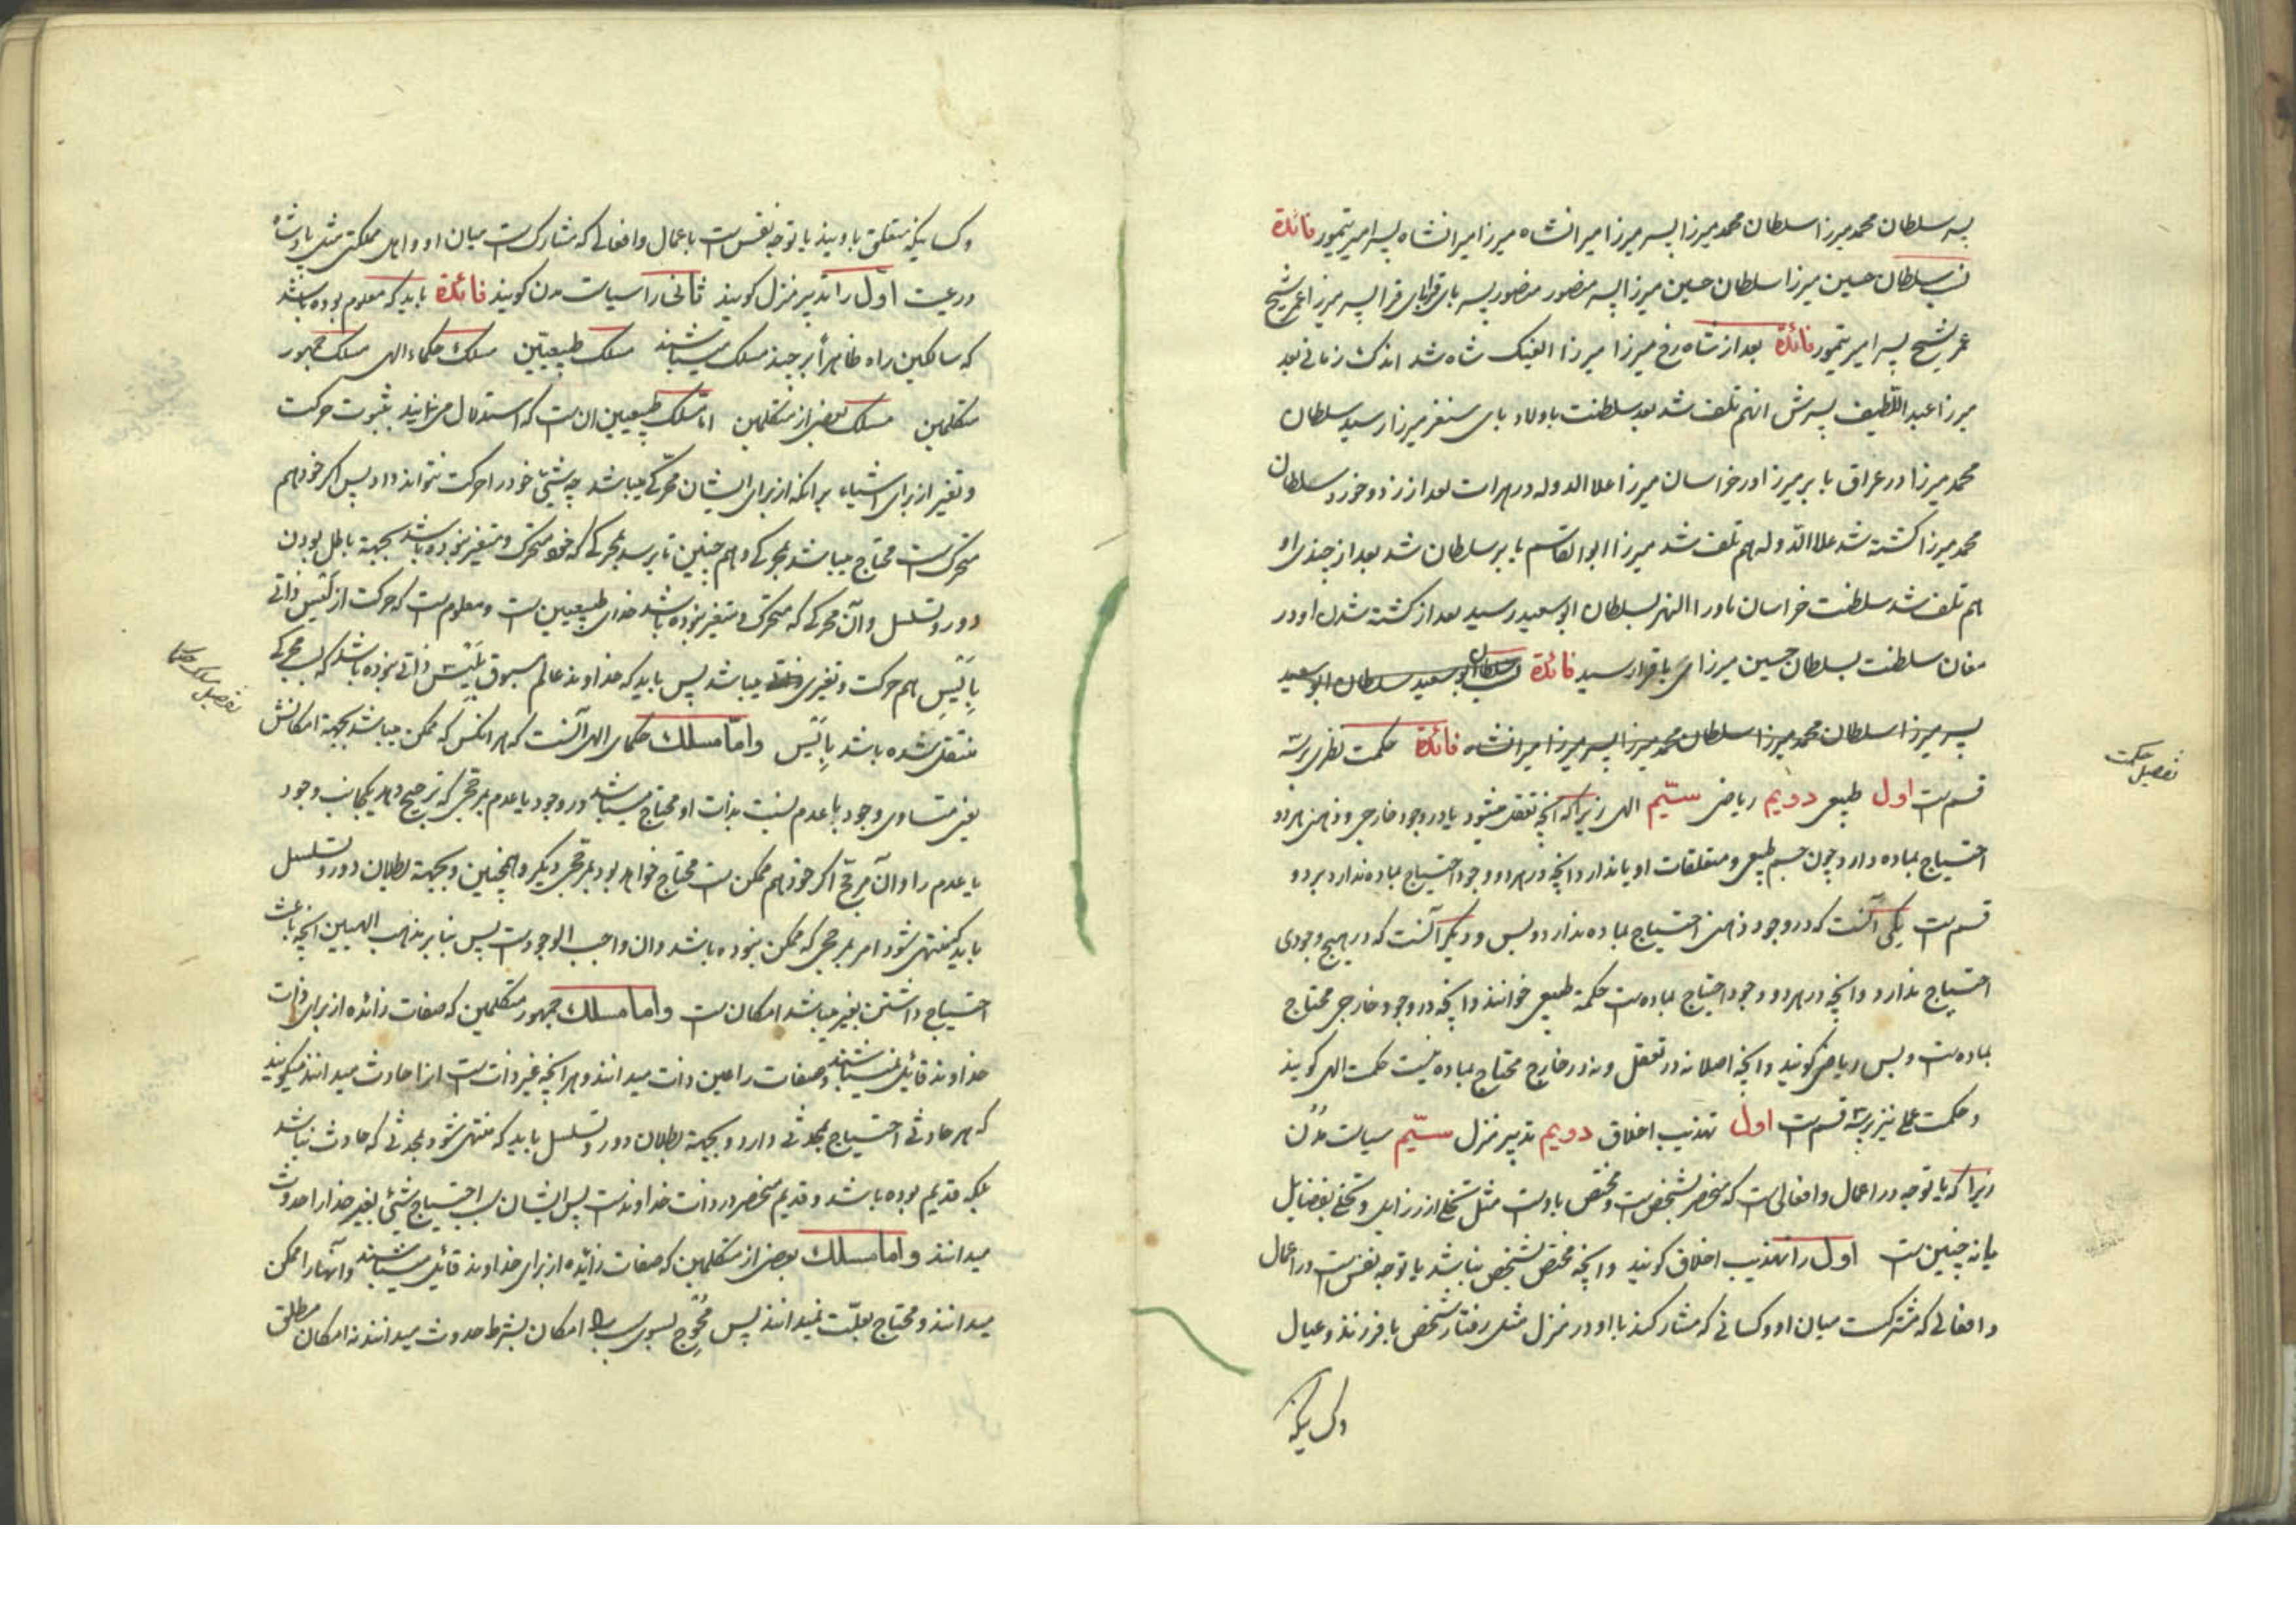 پسر سلطان محمد میرزا سلطان محمد میرزا پسر میرزا میرانشاه میرزا میرانشاه پسر امیر تیمور فائدة
نسب سلطان حسین میرزا سلطان حسین میرزا پسر منصور منصور پسر بای قرا بای قرا پسر میرزا عمر شیخ
عمر شیخ پسر امیر تیمور فائدة بعد از شاه رخ میرزا میرزا الغبک شاه شد اندک زمانی بعد
میرزا عبد اللّطیف پسرش انهم تلف شد بعد سلطنت باولاد بای سنغر میرزا رسید سلطان
محمد میرزا در عراق بابر میرزا در خراسان میرزا علاالدوله در هرات بعد از زد و خورد سلطان
محمد میرزا کشته شد علاالدّوله هم تلف شد میرزا ابوالقاسم بابر سلطان شد بعد از چندی او
هم تلف شد سلطنت خراسان ماوراالنهر بسلطان ابوسعید رسید بعد از کشته شدن او در
مغان سلطنت بسلطان حسین میرزای باقرا رسید فائدة نسب سلطان ابوسعید سلطان ابوسعید
پسر میرزا سلطان محمد میرزا سلطان محمد میرزا پسر میرزا میرانشاه فائدة حکمت نظری بر سه
قسم است اول طبیعی دویم ریاضی سیّم الهی زیرا که آنچه تعقل میشود یا در وجود خارجی و ذهنی هر دو
احتیاج بماده دارد چون جسم طبیعی و متعلقات او یا ندارد و آنچه در هر دو وجود احتیاج بماده ندارد بر دو
قسم است یکی آنست که در وجود ذهنی احتیاج بماده ندارد و بس و دیگر آنست که در هیچ وجودی
احتیاج ندارد و آنچه در هر دو وجود احتیاج بماده است حکمة طبیعی خوانند و آنچه در وجود خارجی محتاج
بماده است و بس ریاضی گویند و آنچه اصلا نه در تعقل و نه در خارج محتاج بماده نیست حکمت الهی گویند
و حکمت عملی نیز بر سه قسم است اول تهذیب اخلاق دویم تدبیر منزل سیّم سیاست مدن
زیرا که یا توجه در اعمال و افعالی است که منحصر بشخص است و مختص باوست مثل تخلی از رزایل و تحلی بفضایل
یا نه چنین است اول را تهذیب اخلاق گویند و آنچه مختص بشخص نباشد یا توجه نفس است در اعمال
و افعالی که مشترکست میان او و کسانی که مشارکند با او در منزل مثل رفتار شخص با فرزند و عیال
و کسانیکه
تفصیل حکمت
و کسانیکه متعلق باویند یا توجه نفس است باعمال و افعالی که مشارک است میان او و اهل مملکتی مثل پادشاه
و رعیت اوّل را تدبیر منزل گویند ثانی را سیاست مدن گویند فائدة باید که معلوم بوده باشد
که سالکین راه ظاهراً بر چند مسلک میباشند مسلک طبیعیّین مسلک حکماء الهی مسلک جمهور
متکلمین مسلک بعضی از متکلمین امّا مسلک طبیعیین ان است که استدلال می نمایند بثبوت حرکت
و تغیر از برای اشیاء بر انکه از برای ایشان محرّکی میباشد چه شیئی خود را حرکت نتواند داد پس اگر خود هم
متحرک است محتاج میباشد بمحرکی و هم چنین تا برسد بمحرکی که خود متحرک و متغیر نبوده باشد بجهة باطل بودن
دور و تسلسل و آن محرکی که متحرک و متغیر نبوده باشد خدای طبیعیین است و معلوم است که حرکت از لَیس ذاتی
بِاَیْسِ هم حرکت و تغیری میباشد پس باید که خداوند عالم مسبوق بلَیْس ذاتی نبوده باشد که بسبب محرکی
منتقل شده باشد بِاَیْس و امّا مسلک حکمای الهی آنست که هر انکس که ممکن میباشد بجهة امکانش
یعنی متساوی وجود با عدم نسبت بذات او محتاج میباشد در وجود یا عدم بمرجحی که ترجیح دهد یکجانب وجود
یا عدم را و آن مرجّح اگر خود هم ممکن است محتاج خواهد بود بمرجحی دیگر و همچنین و بجهة بطلان دور و تسلسل
باید که منتهی شود امر بمرجحی که ممکن نبوده باشد و ان واجب الوجود است پس بنا بر مذهب الهیین آنچه باعث
احتیاج داشتن بغیر میباشد امکان است و اما مسلک جمهور متکلمین که صفات زائده از برای ذات
خداوند قائل نمیباشند و صفات را عین ذات میدانند و هر آنچه غیر ذات است انرا حادث میدانند میگویند
که هر حادثی احتیاج بمحدثی دارد و بجهة بطلان دور و تسلسل باید که منتهی شود بمحدثی که حادث نباشد
بلکه قدیم بوده باشد و قدیم منحصر در ذات خداوند است پس ایشان سبب احتیاج شیئی بغیر خدا را حدوث
میدانند و اما مسلک بعضی از متکلمین که صفات زایده از برای خداوند قائل میباشند و آنها را ممکن
میدانند و محتاج بعلّت نمیدانند پس مُحْوِج بسوی سبب را امکان بشرط حدوث میدانند نه امکان مطلق
تفصیل مسلک حکما